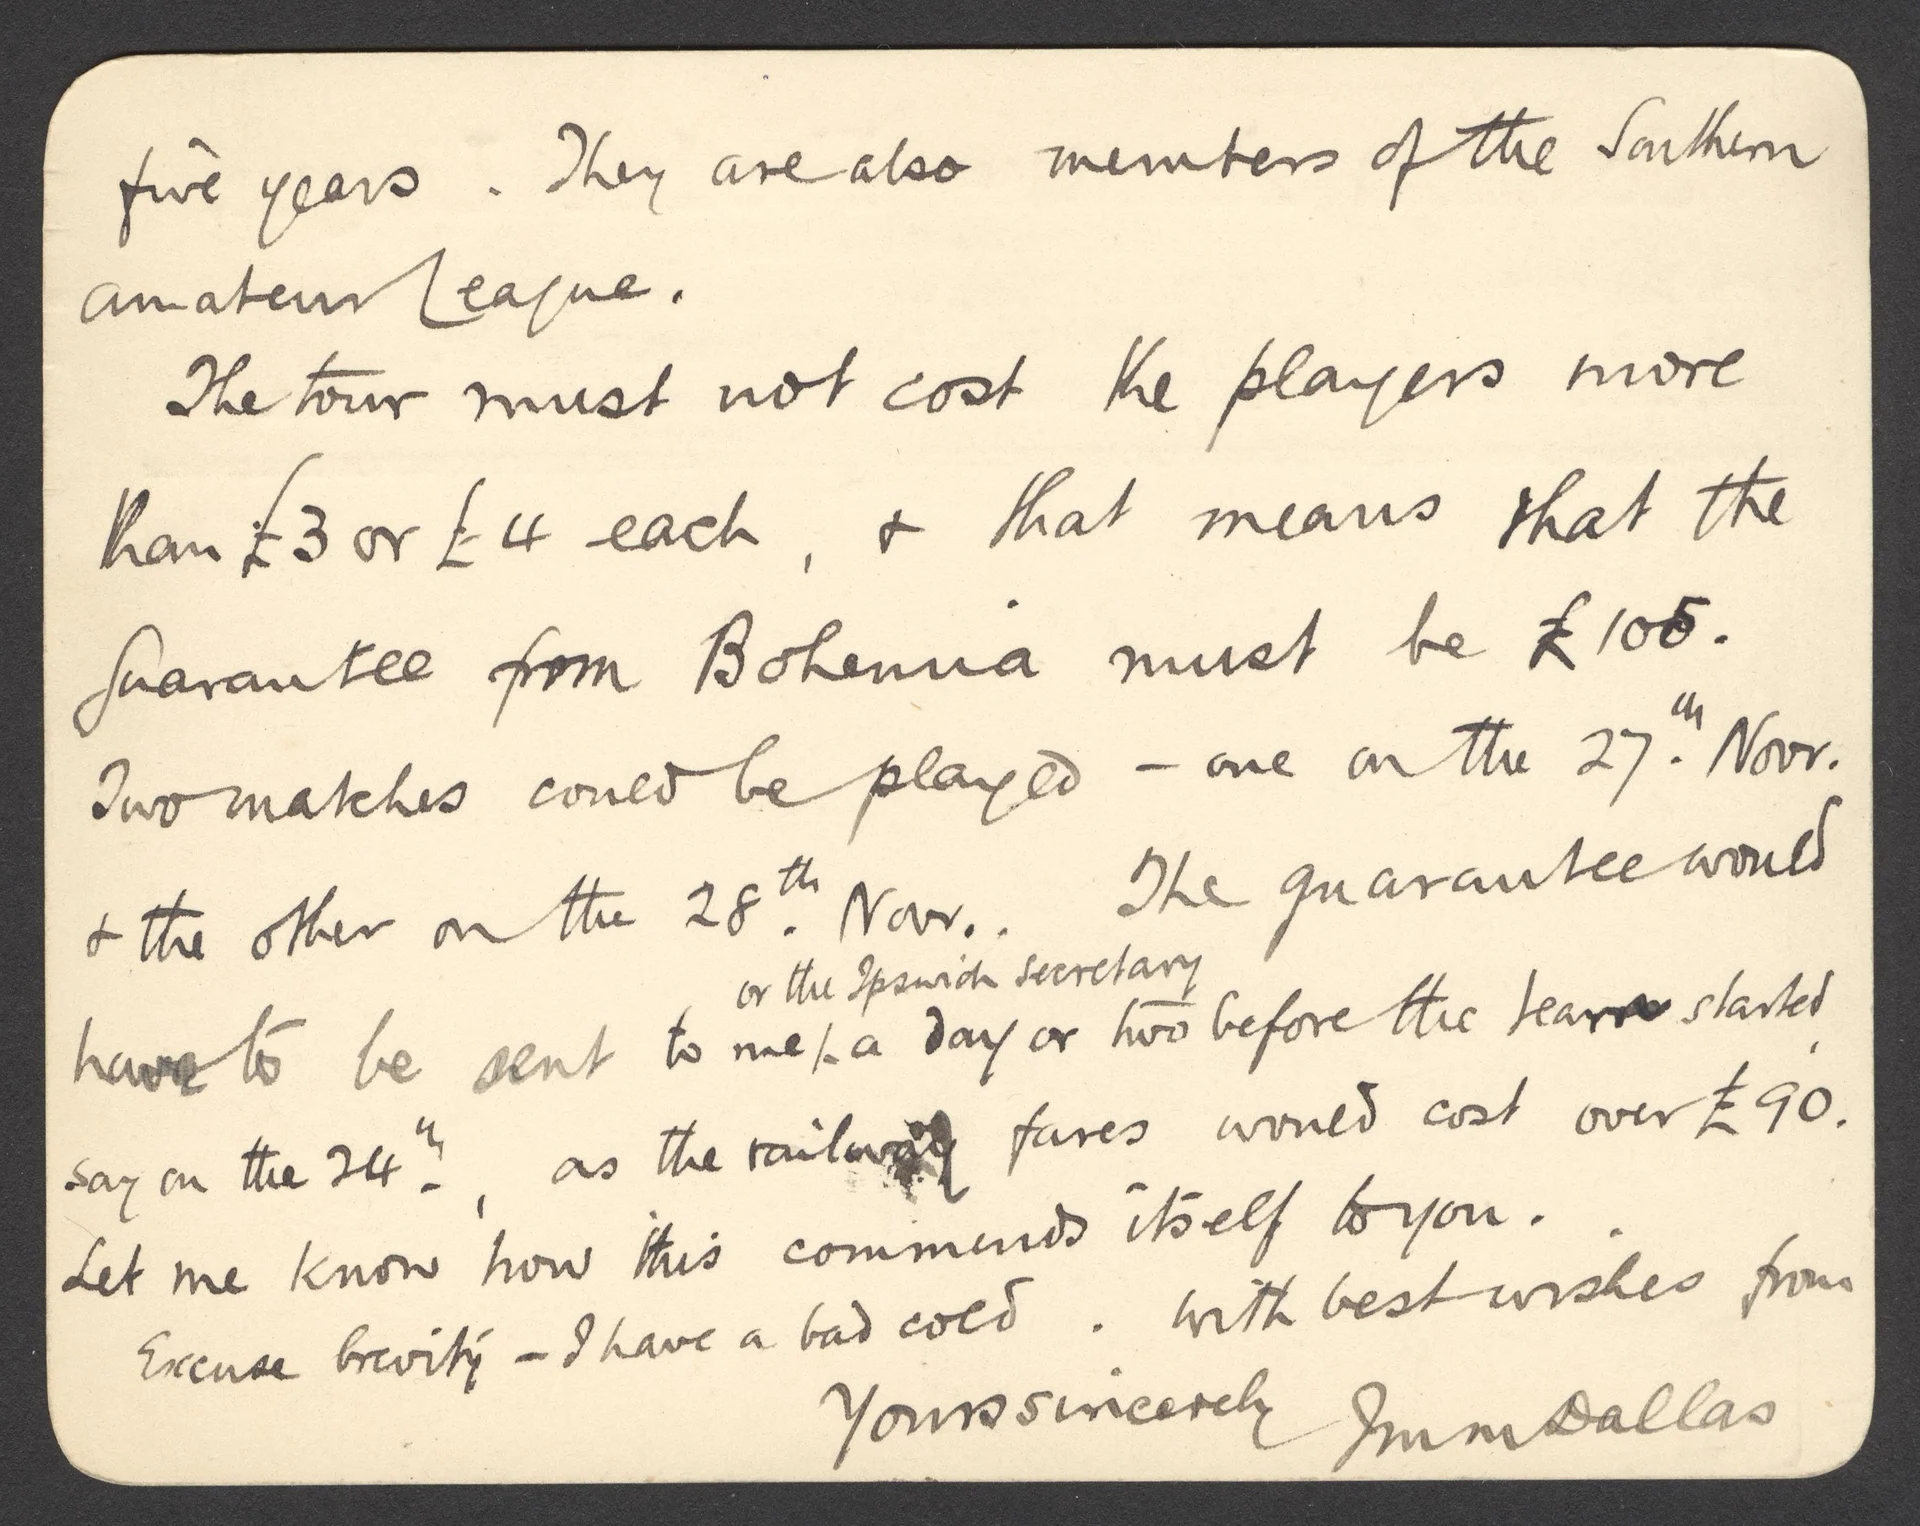 five years. They are also members of the Southern
amateur League.
The tour must not cost the players more
than £3 or £4 each, & that means that the
guarantee from Bohemia must be £105.
Two matches could be played - one on the 27th. Novr.
& the other on the 28th. Novr.. The guarantee would
or the Ipswich secretary
have to be sent to me / a day or two before the team started,
say on the 24th., as the railway fares would cost over £90.
Let me know how this commends itself to you.
Excuse brevity - I have a bad cold. With best wishes from
Yours sincerely Dallas